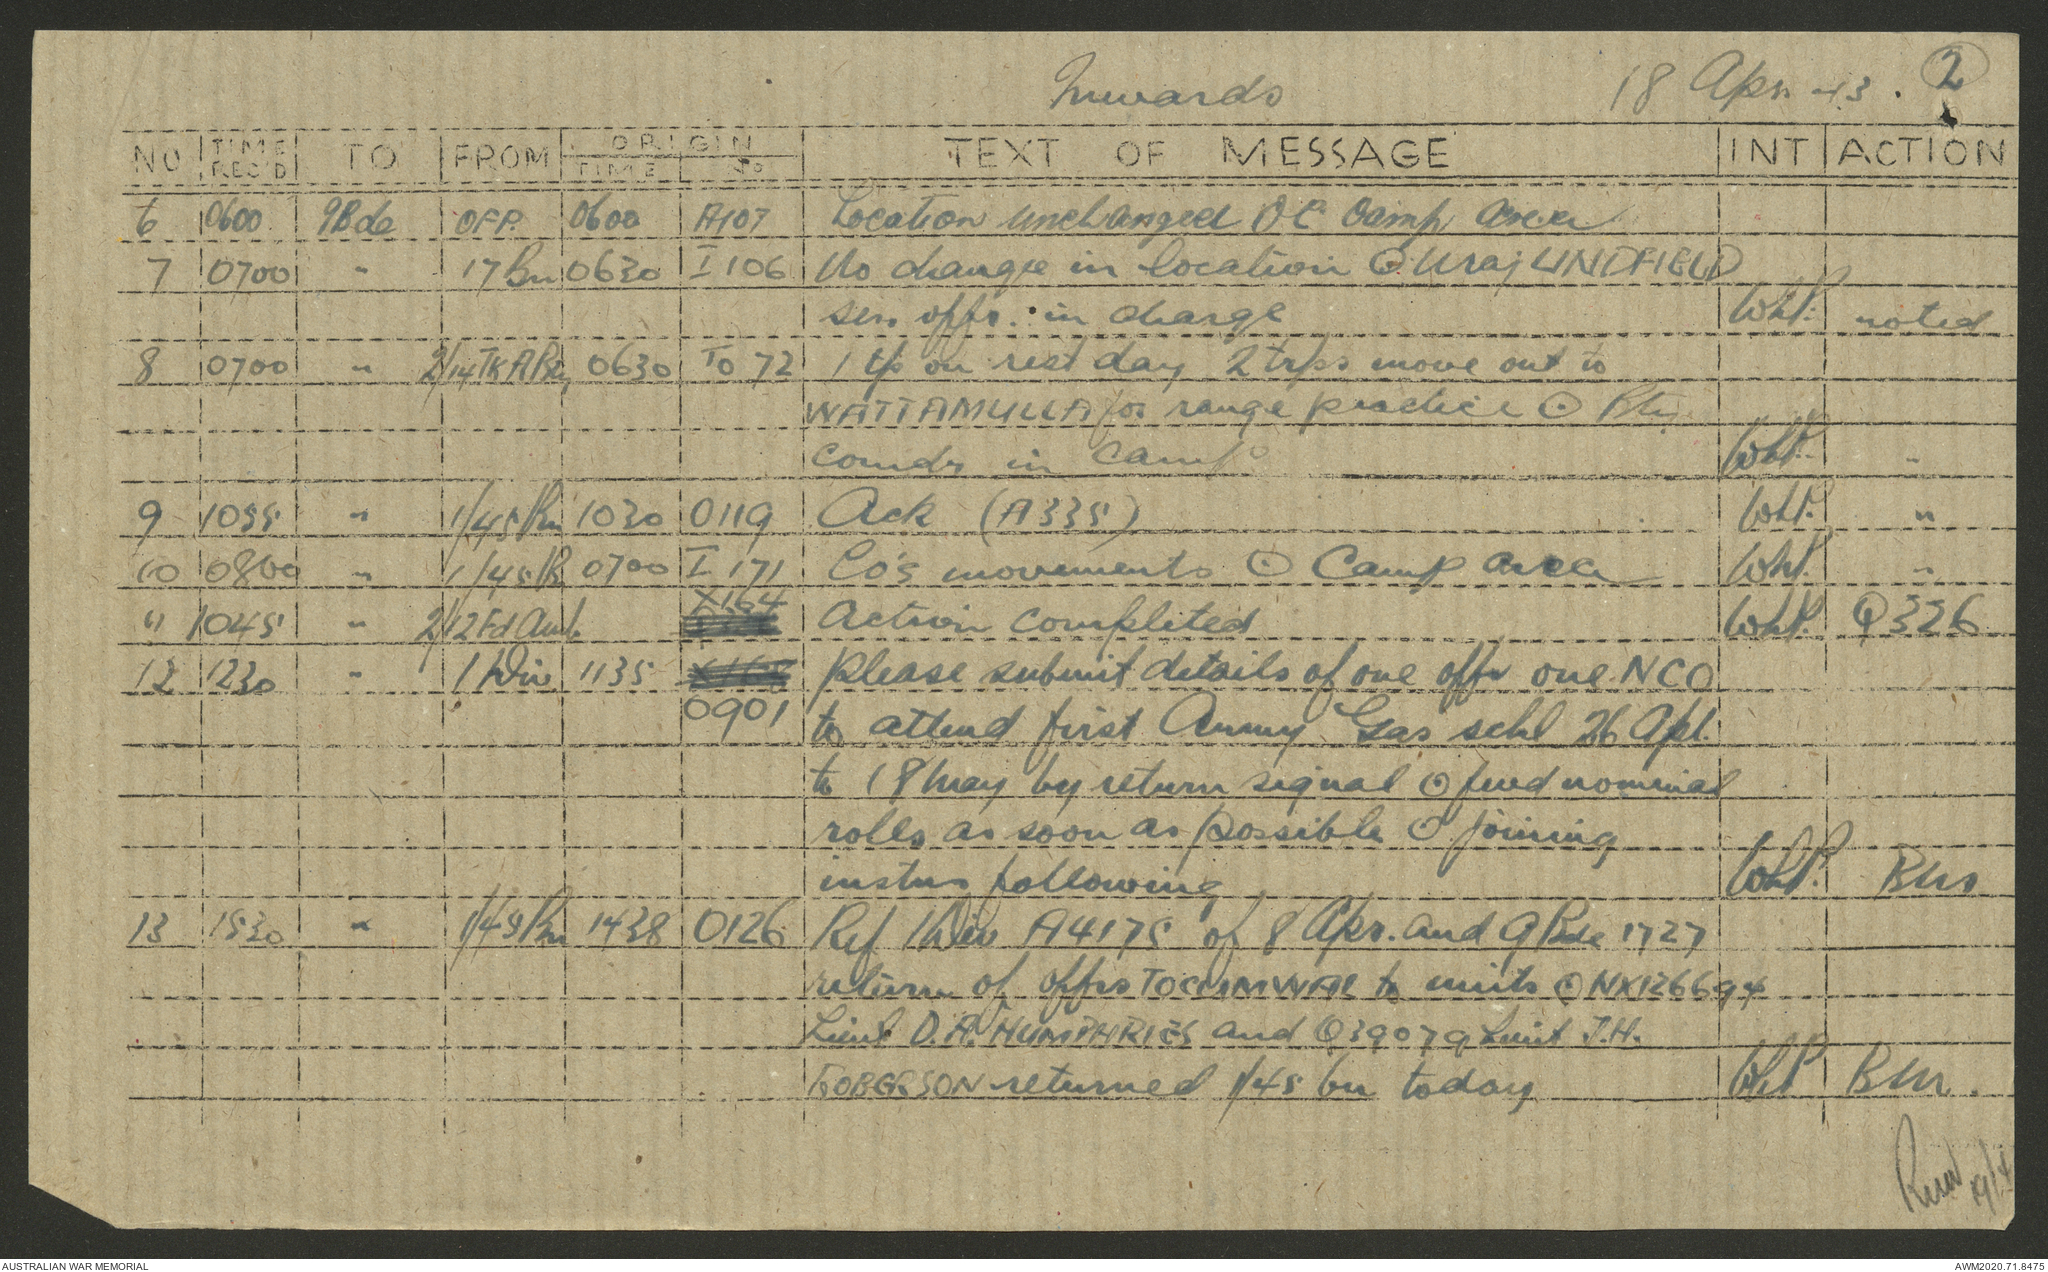 Inwards 18 Apr 43. 2
NO TIME REC'D TO FROM ORIGIN TIME NO TEXT OF MESSAGE INT ACTION
6 0600 9Bde OFP. 0600 A107 Location unchanged OC camp area
7 0700 " 17 Bn 0630 I 106 No change in location ⊙ Maj LINDFIELD
sen offr. in charge WhP. noted
8 0700 " 2/14 TK A Bty 0630 TO 72 1 tp on rest day 2 trps move out to
WATTAMULLA for range practice ⊙ Bty
comdr in camp WhP. "
9 1055 " 1/45 Bn 1030 O119 Ack (A335) WhP. "
10 0800 " 1/45 Bn 0700 I 171 Co's movements ⊙ Camp area WhP. "
X164
11 1045 " 2/12 Fd Amb Action completed WhP. Q326
12 1230 " 1 Div 1135 X168 please submit details of one offr one NCO
O901 to attend first Army Gas schl 26 Apl.
to 18 May by return signal ⊙ fwd nominal
rolls as soon as possible ⊙ joining
instns following WhP. BM
13 1530 " 1/45 Bn 1438 O126 Ref 1 Div A4175 of 8 Apr. and 9 Bde 1727
return of offrs TOCUMWAL to units ⊙ NX126694
Lieut D.A. HUMPHRIES and Q39079 Lieut J.H.
ROBERSON returned 1/45 bn today WhP BM.
19/4
AUSTRALIAN WAR MEMORIAL AWM2020.71.8475